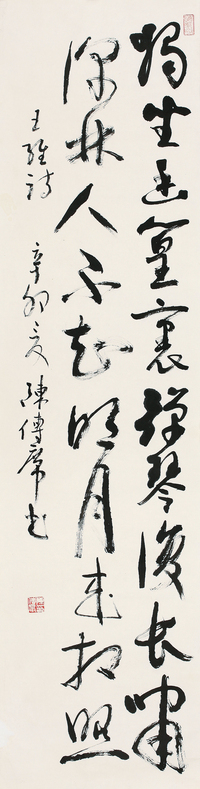 獨坐幽篁裏彈琴復長嘯
深林人不知明月来相照
王維詩
辛卯夏陳傳席書